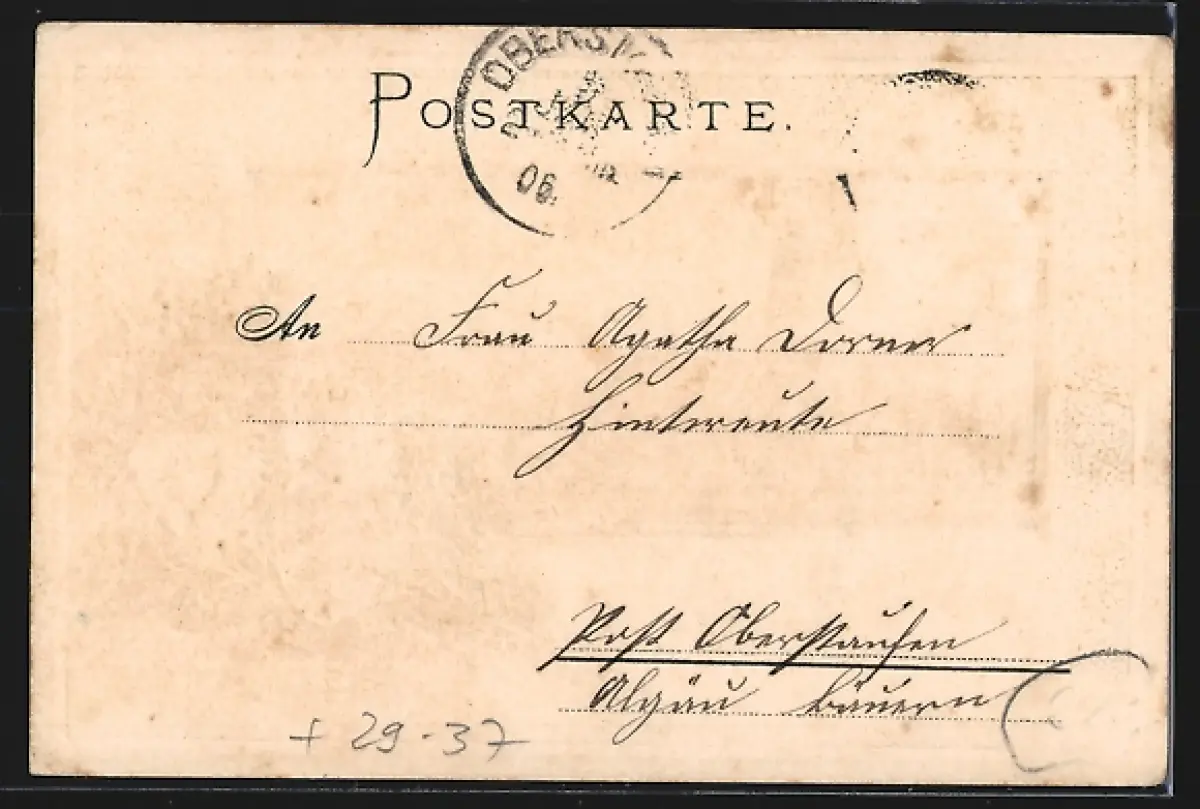 OBERST
POSTKARTE.
06.
An Frau Agatha Dorner
Hintereute
Post Oberstaufen
Algäu Baüern
+ 29-37